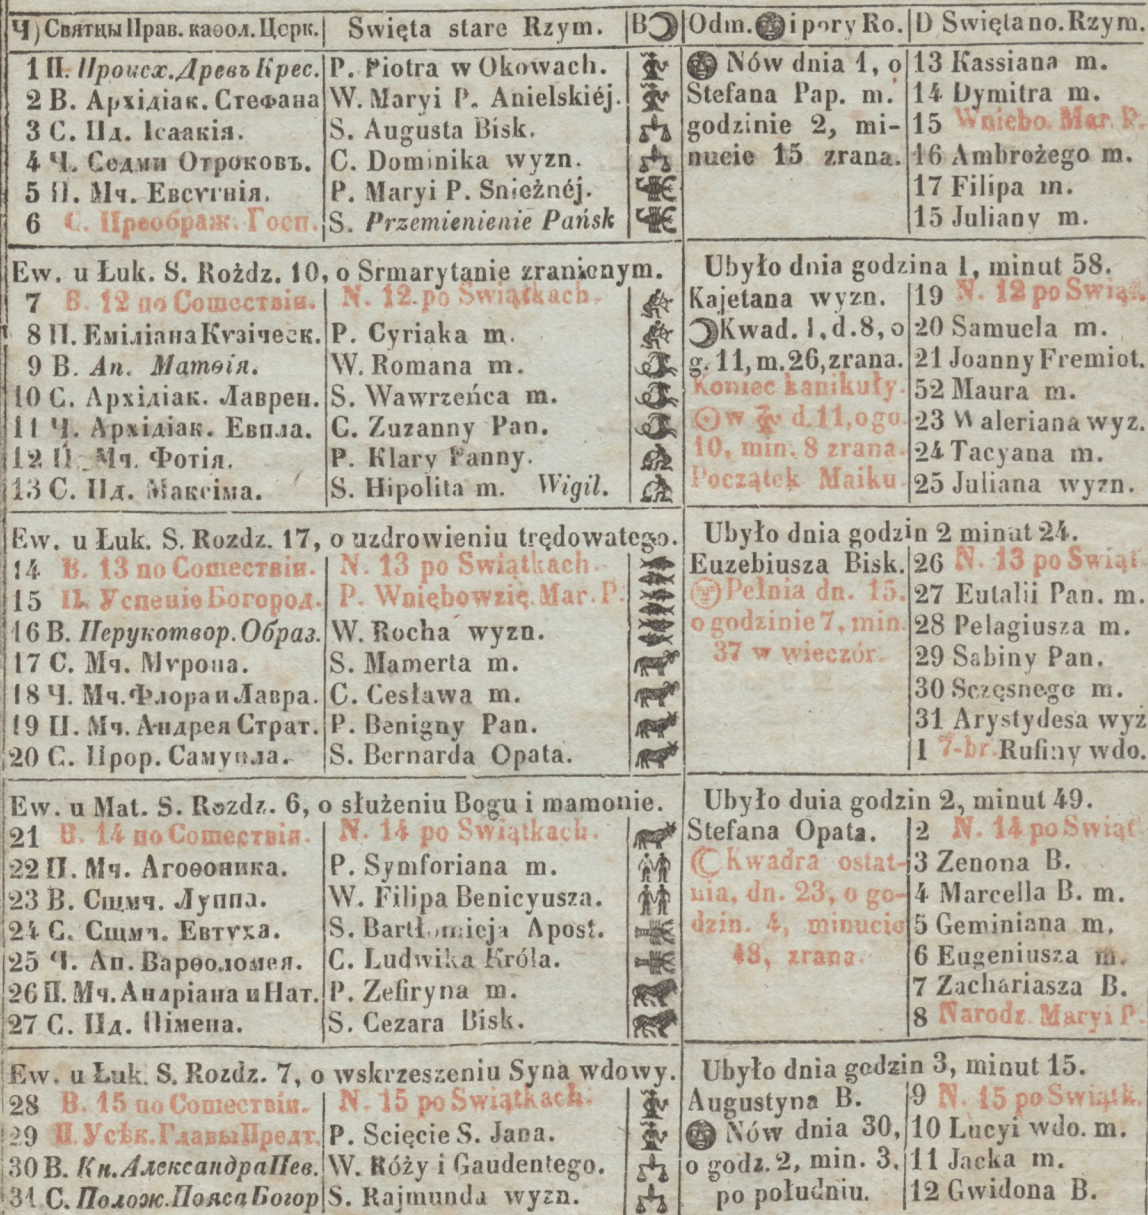 Ч) Святцы Прав. каѳол. Церк. Święta stare Rzym. B☽ Odm. i pory Ro. D Święta no. Rzym.
1 П. Происх. Древъ Крес. P. Piotra w Okowach. Nów dnia 1, o 13 Kassiana m.
2 В. Архідіак. Стефана W. Maryi P. Anielskiéj. Stefana Pap. m. 14 Dymitra m.
3 С. Пд. Ісаакія. S. Augusta Bisk. godzinie 2, mi- 15 Wniebo. Mar. P.
4 Ч. Седми Отроковъ. C. Dominika wyzn. nucie 15 zrana. 16 Ambrożego m.
5 П. Мч. Евсугнія. P. Maryi P. Snieżnéj. 17 Filipa m.
6 С. Преображ. Госп. S. Przemienienie Pańsk 15 Juliany m.
Ew. u Łuk. S. Rożdz. 10, o Srmarytanie zranionym. Ubyło dnia godzina 1, minut 58.
7 В. 12 по Сошествіи. N. 12 po Swiątkach. Kajetana wyzn. 19 N. 12 po Swiąk
8 П. Еміліана Кузіческ. P. Cyriaka m. ☽Kwad. 1, d. 8, o 20 Samuela m.
9 В. Ап. Матѳія. W. Romana m. g. 11, m. 26, zrana. 21 Joanny Fremiot.
10 С. Архідіак. Лаврен. S. Wawrzeńca m. Koniec kanikuły. 52 Maura m.
11 Ч. Архідіак. Евпла. C. Zuzanny Pan. ☉ w d. 11, o go 23 Waleriana wyz.
12 П. Мч. Фотія. P. Klary Panny. 10, min. 8 zrana. 24 Tacyana m.
13 С. Пд. Максіма. S. Hipolita m. Wigil. Początek Maiku 25 Juliana wyzn.
Ew. u Łuk. S. Rozdz. 17, o uzdrowieniu trędowatego. Ubyło dnia godzin 2 minut 24.
14 В. 13 по Сошествіи. N. 13 po Swiątkach. Euzebiusza Bisk. 26 N. 13 po Swiąt
15 П. Успеніе Богород. P. Wniębowzię. Mar. P. Pełnia dn. 15. 27 Eutalii Pan. m.
16 В. Нерукотвор. Образ. W. Rocha wyzn. o godzinie 7, min. 28 Pelagiusza m.
17 С. Мч. Мурона. S. Mamerta m. 37 w wieczór. 29 Sabiny Pan.
18 Ч. Мч. Флора и Лавра. C. Cesława m. 30 Sczęsnego m.
19 П. Мч. Андрея Страт. P. Benigny Pan. 31 Arystydesa wyż
20 С. Прор. Самуила. S. Bernarda Opata. 1 7-br. Rufiny wdo.
Ew. u Mat. S. Rozdz. 6, o służeniu Bogu i mamonie. Ubyło duia godzin 2, minut 49.
21 В. 14 по Сошествіи. N. 14 po Swiątkach. Stefana Opata. 2 N. 14 po Swiąt
22 П. Мч. Агоѳоника. P. Symforiana m. ☾Kwadra ostat- 3 Zenona B.
23 В. Сщмч. Луппа. W. Filipa Benicyusza. nia, dn. 23, o go- 4 Marcella B. m.
24 С. Сщмч. Евтуха. S. Bartłomieja Apost. dzin. 4, minucie 5 Geminiana m.
25 Ч. Ап. Варѳоломея. C. Ludwika Króla. 48, zrana. 6 Eugeniusza m.
26 П. Мч. Андріана и Нат. P. Zefiryna m. 7 Zachariasza B.
27 С. Пд. Пімена. S. Cezara Bisk. 8 Narodz. Maryi P.
Ew. u Łuk. S. Rozdz. 7, o wskrzeszeniu Syna wdowy. Ubyło dnia godzin 3, minut 15.
28 В. 15 по Сошествіи. N. 15 po Swiątkach. Augustyna B. 9 N. 15 po Swiątk.
29 П. Усѣк. Главы Предт. P. Scięcie S. Jana. Nów dnia 30, 10 Lucyi wdo. m.
30 В. Кн. Александра Нев. W. Róży i Gaudentego. o godz. 2, min. 3. 11 Jacka m.
31 С. Полож. Пояса Богор S. Rajmunda wyzn. po południu. 12 Gwidona B.